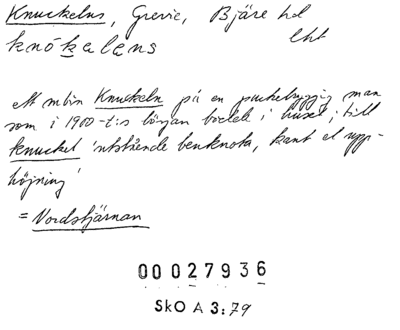 Knuckelns, Grevie, Bjäre hd
knókalens lht
ett ökn Knuckeln på en puckelryggig man
som i 1900-t:s början bodde i huset; till
knuckel 'utstående benknota, kant el upp-
höjning'
= Nordstjärnan
00027936
SkO A 3:79